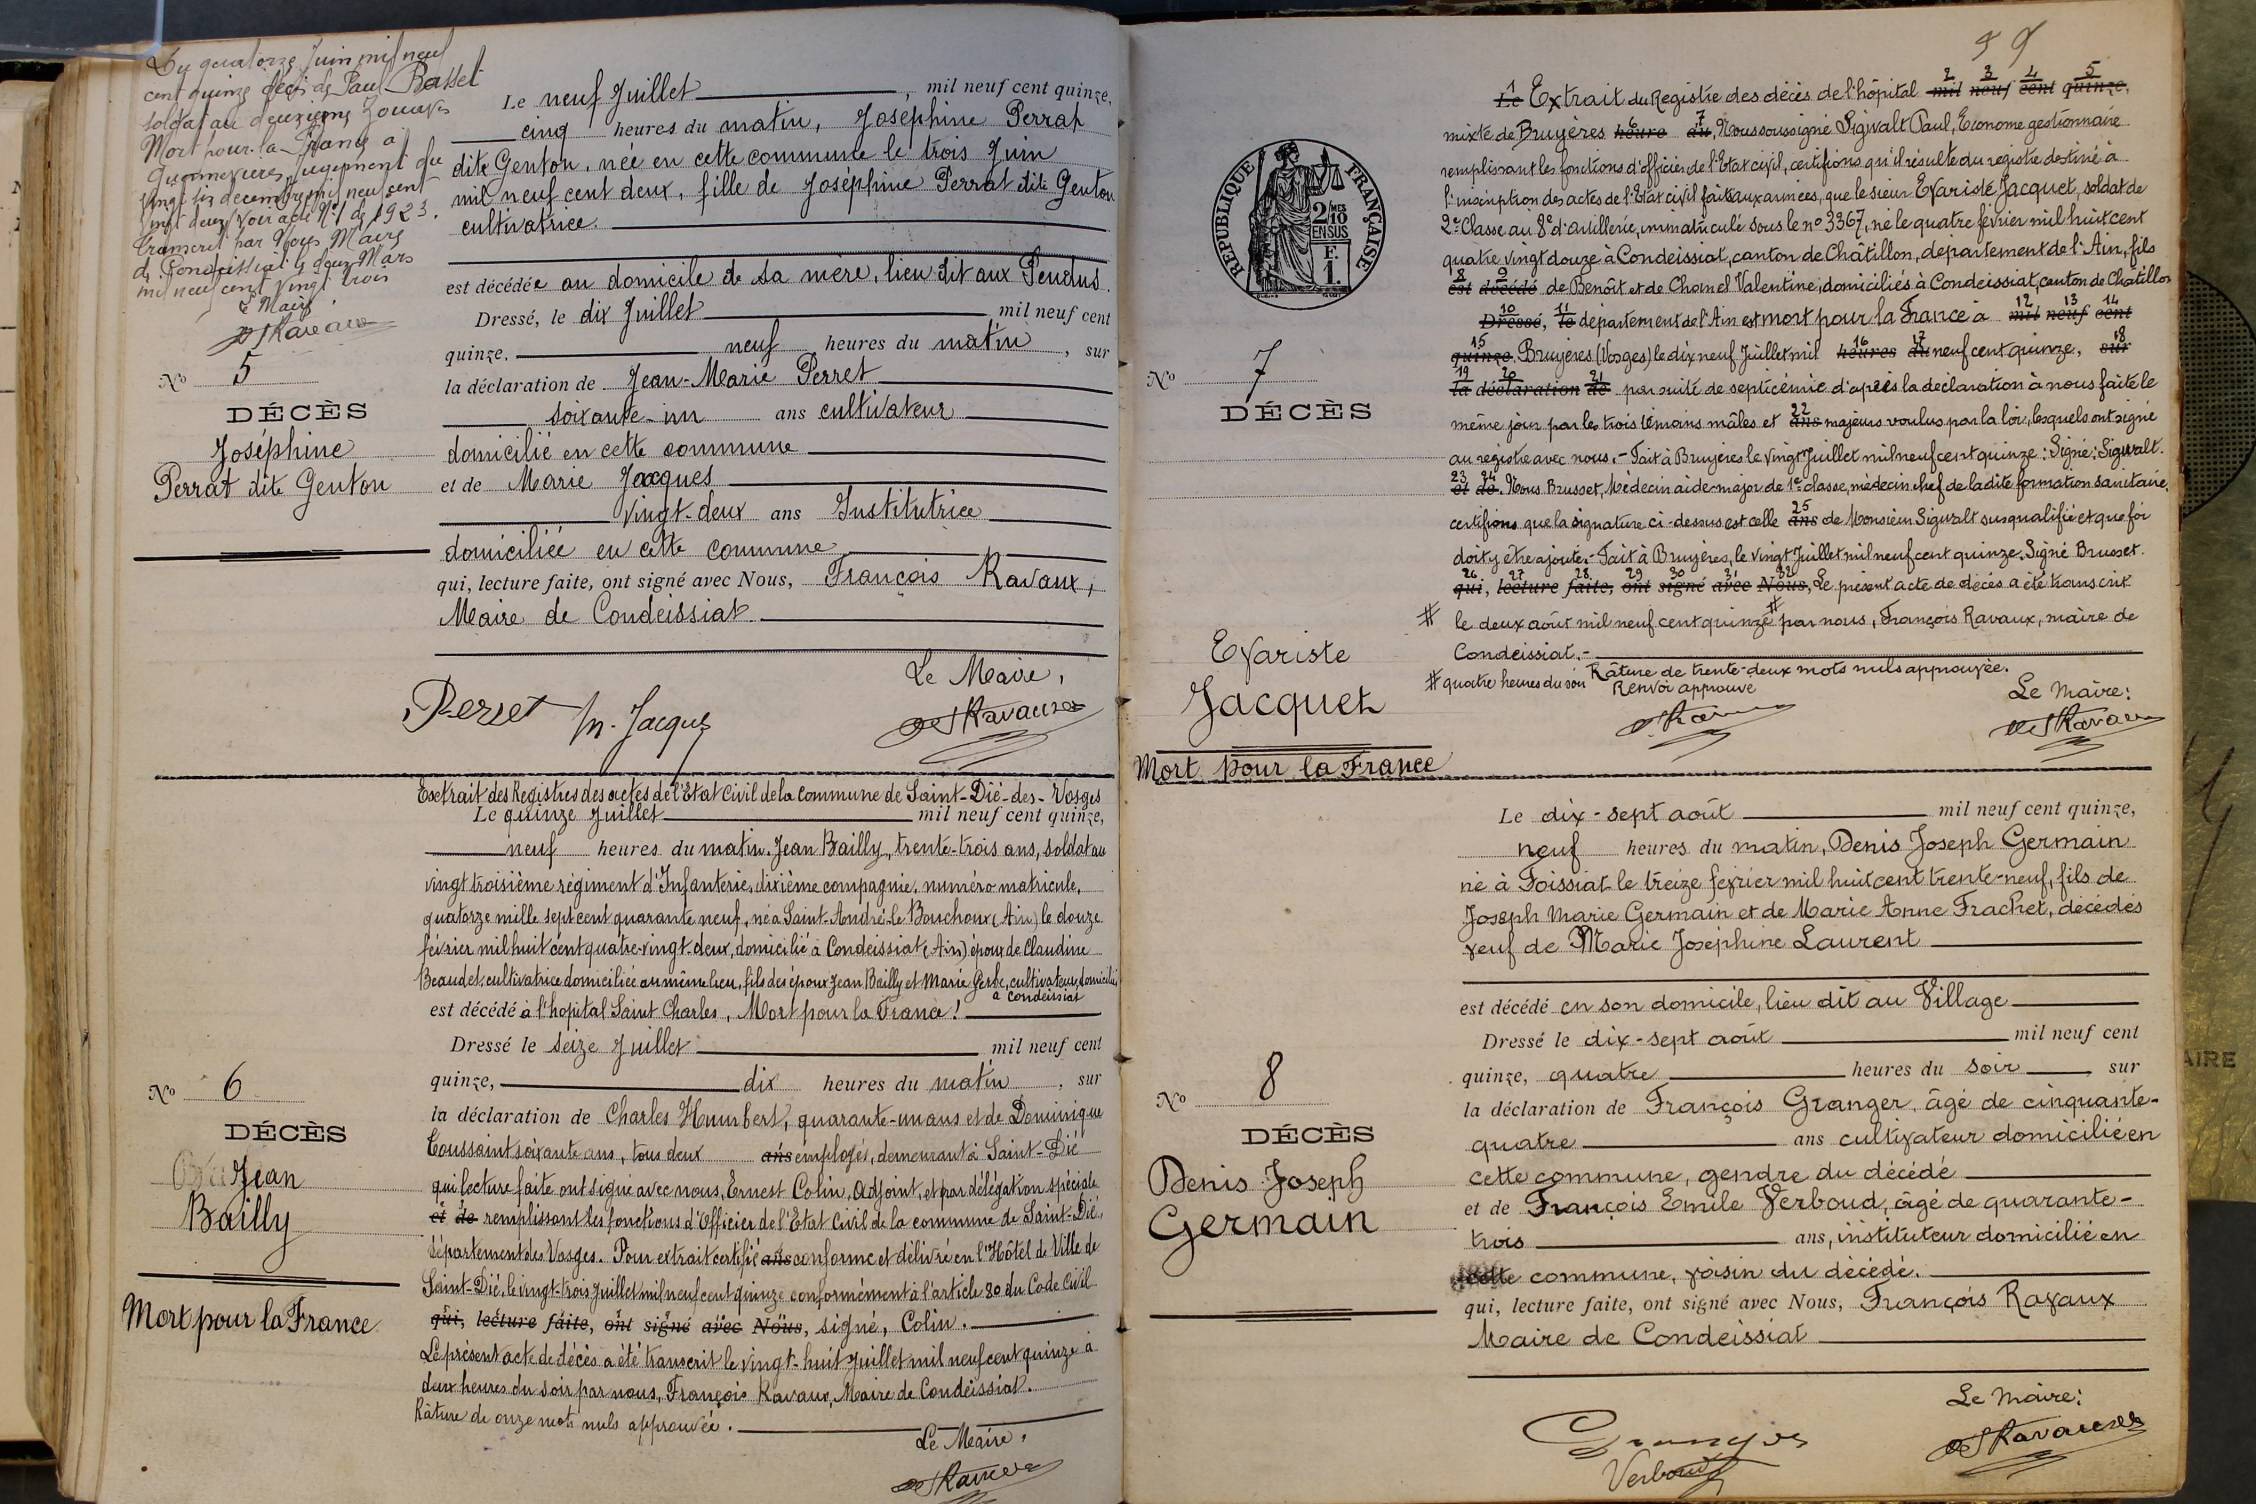 Du quatorze Juin mil neuf
cent quinze décès de Paul Basset
soldat au deuxième Zouaves
Mort pour la France à
jugement du
vingt six décembre mil neuf cent
vingt deux, voir acte N°1 de 1923.
transcrit par Nous Maire
de Condeissiat le deux Mars
mil neuf cent vingt trois
Le Maire
Ravaux
N° 5
DÉCÈS
Joséphine
Perrat dite Genton
Le neuf Juillet, mil neuf cent quinze,
cinq heures du matin, Joséphine Perrat
dite Genton, née en cette commune le trois Juin
mil neuf cent deux, fille de Joséphine Perrat dite Genton
cultivatrice.
est décédée au domicile de sa mère, lieu dit aux Pendus.
Dressé, le dix Juillet mil neuf cent
quinze. neuf heures du matin, sur
la déclaration de Jean-Marie Perret
soixante-un ans cultivateur
domicilié en cette commune
et de Marie Jacques
vingt-deux ans Institutrice
domiciliée en cette commune
qui, lecture faite, ont signé avec Nous, François Ravaux,
Maire de Condeissiat.
Le Maire,
Perret M. Jacques Ravaux
N° 6
DÉCÈS
Jean
Bailly
Mort pour la France
Extrait des Registres des actes de l'Etat Civil de la commune de Saint-Dié-des-Vosges
Le quinze Juillet mil neuf cent quinze,
neuf heures du matin. Jean Bailly, trente-trois ans, soldat au
vingt troisième régiment d'Infanterie, dixième compagnie, numéro matricule,
quatorze mille sept cent quarante neuf, né à Saint-André-le-Bouchoux (Ain) le douze
février mil huit cent quatre-vingt-deux, domicilié à Condeissiat (Ain) époux de Claudine
Beaudet, cultivatrice domiciliée au même lieu, fils des époux Jean Bailly et Marie Gerbe, cultivateurs, domiciliés
à Condeissiat
est décédé à l'hopital Saint Charles, Mort pour la France!
Dressé le seize Juillet mil neuf cent
quinze, dix heures du matin, sur
la déclaration de Charles Humbert, quarante-un ans et de Dominique
Toussaint soixante ans, tous deux ans employés, demeurant à Saint-Dié
qui lecture faite ont signé avec nous, Ernest Colin, Adjoint, et par délégation spéciale
et de remplissant les fonctions d'Officier de l'Etat Civil de la commune de Saint-Dié,
département des Vosges. Pour extrait certifié ans conforme et délivré en l'Hôtel de Ville de
Saint-Dié, le vingt-trois Juillet mil neuf cent quinze conformément à l'article 80 du Code Civil
qui, lecture faite, ont signé avec Nous, signé, Colin.
Le présent acte de décès a été transcrit le vingt-huit Juillet mil neuf cent quinze à
deux heures du soir par nous, François Ravaux, Maire de Condeissiat.
Râture de onze mots nuls approuvée.
Le Maire,
Ravaux
RÉPUBLIQUE FRANÇAISE
2/MES
10
EN SUS
F.
1.
N° 7
DÉCÈS
Evariste
Jacquet
Mort pour la France
1 2 3 4 5
Le Extrait du Registre des décès de l'hôpital mil neuf cent quinze,
6 7
mixte de Bruyères heure du, Nous soussigné Sigwalt Paul, Econome gestionnaire
remplissant les fonctions d'officier de l'Etat civil, certifions qu'il résulte du registre destiné à
l'inscription des actes de l'Etat civil faits aux armées, que le sieur Evariste Jacquet, soldat de
2e Classe au 8e d'artillerie, immatriculé sous le n° 3367, né le quatre février mil huit cent
quatre vingt douze à Condeissiat, canton de Châtillon, département de l'Ain, fils
8 9
est décédé de Benoît et de Charnel Valentine, domiciliés à Condeissiat, canton de Chatillon
10 11 12 13 14
Dressé, le département de l'Ain est mort pour la France à mil neuf cent
15 16 17 18
quinze. Bruyères (Vosges) le dix neuf Juillet mil heures du neuf cent quinze, sur
19 20 21
la déclaration de par suite de septicémie d'après la déclaration à nous faite le
22
même jour par les trois témoins mâles et ans majeurs voulus par la loi, lesquels ont signé
au registre avec nous. - Fait à Bruyères le vingt Juillet mil neuf cent quinze: Signé: Sigwalt.
23 24
et de. Nous Brusset, Médecin aide-major de 1e classe, médecin chef de la dite formation sanitaire,
25
certifions que la signature ci-dessus est celle ans de Monsieur Sigwalt susqualifié et que foi
doit y être ajoutée. - Fait à Bruyères, le vingt Juillet mil neuf cent quinze. Signé Brusset.
26 27 28 29 30 31 32
qui, lecture faite, ont signé avec Nous, Le présent acte de décès a été transcrit
# le deux août mil neuf cent quinze # par nous, François Ravaux, maire de
Condeissiat. -
Râture de trente-deux mots nuls approuvée.
# quatre heures du soir Renvoi approuvé
Le Maire:
Ravaux
N° 8
DÉCÈS
Denis Joseph
Germain
Le dix-sept août mil neuf cent quinze,
neuf heures du matin, Denis Joseph Germain
né à Foissiat le treize février mil huit cent trente-neuf, fils de
Joseph Marie Germain et de Marie Anne Frachet, décédés
veuf de Marie Joséphine Laurent
est décédé en son domicile, lieu dit au Village
Dressé le dix-sept août mil neuf cent
quinze, quatre heures du soir sur
la déclaration de François Granger, âgé de cinquante-
quatre ans cultivateur domicilié en
cette commune, gendre du décédé
et de François Emile Verboud, âgé de quarante-
trois ans, instituteur domicilié en
cette commune, voisin du décédé.
qui, lecture faite, ont signé avec Nous, François Ravaux
Maire de Condeissiat
Le Maire:
Granger Ravaux
Verboud
AIRE